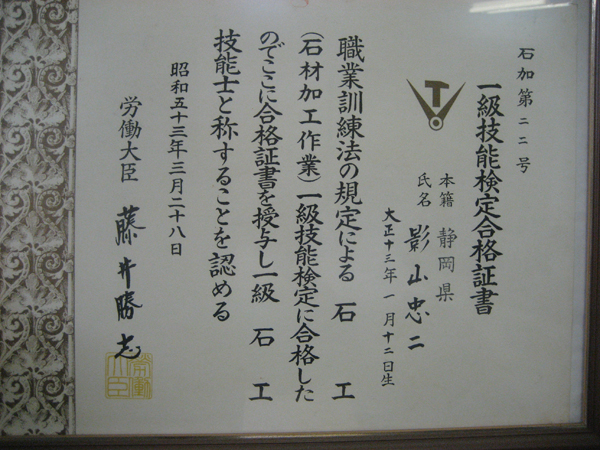 石加第二二号
一級技能検定合格証書
本籍 静岡県
氏名 影山忠二
大正十三年一月十二日生
職業訓練法の規定による 石工
(石材加工作業)一級技能検定に合格した
のでここに合格証書を授与し一級 石工
技能士と称することを認める
昭和五十三年三月二十八日
労働大臣 藤井勝志
労働大臣